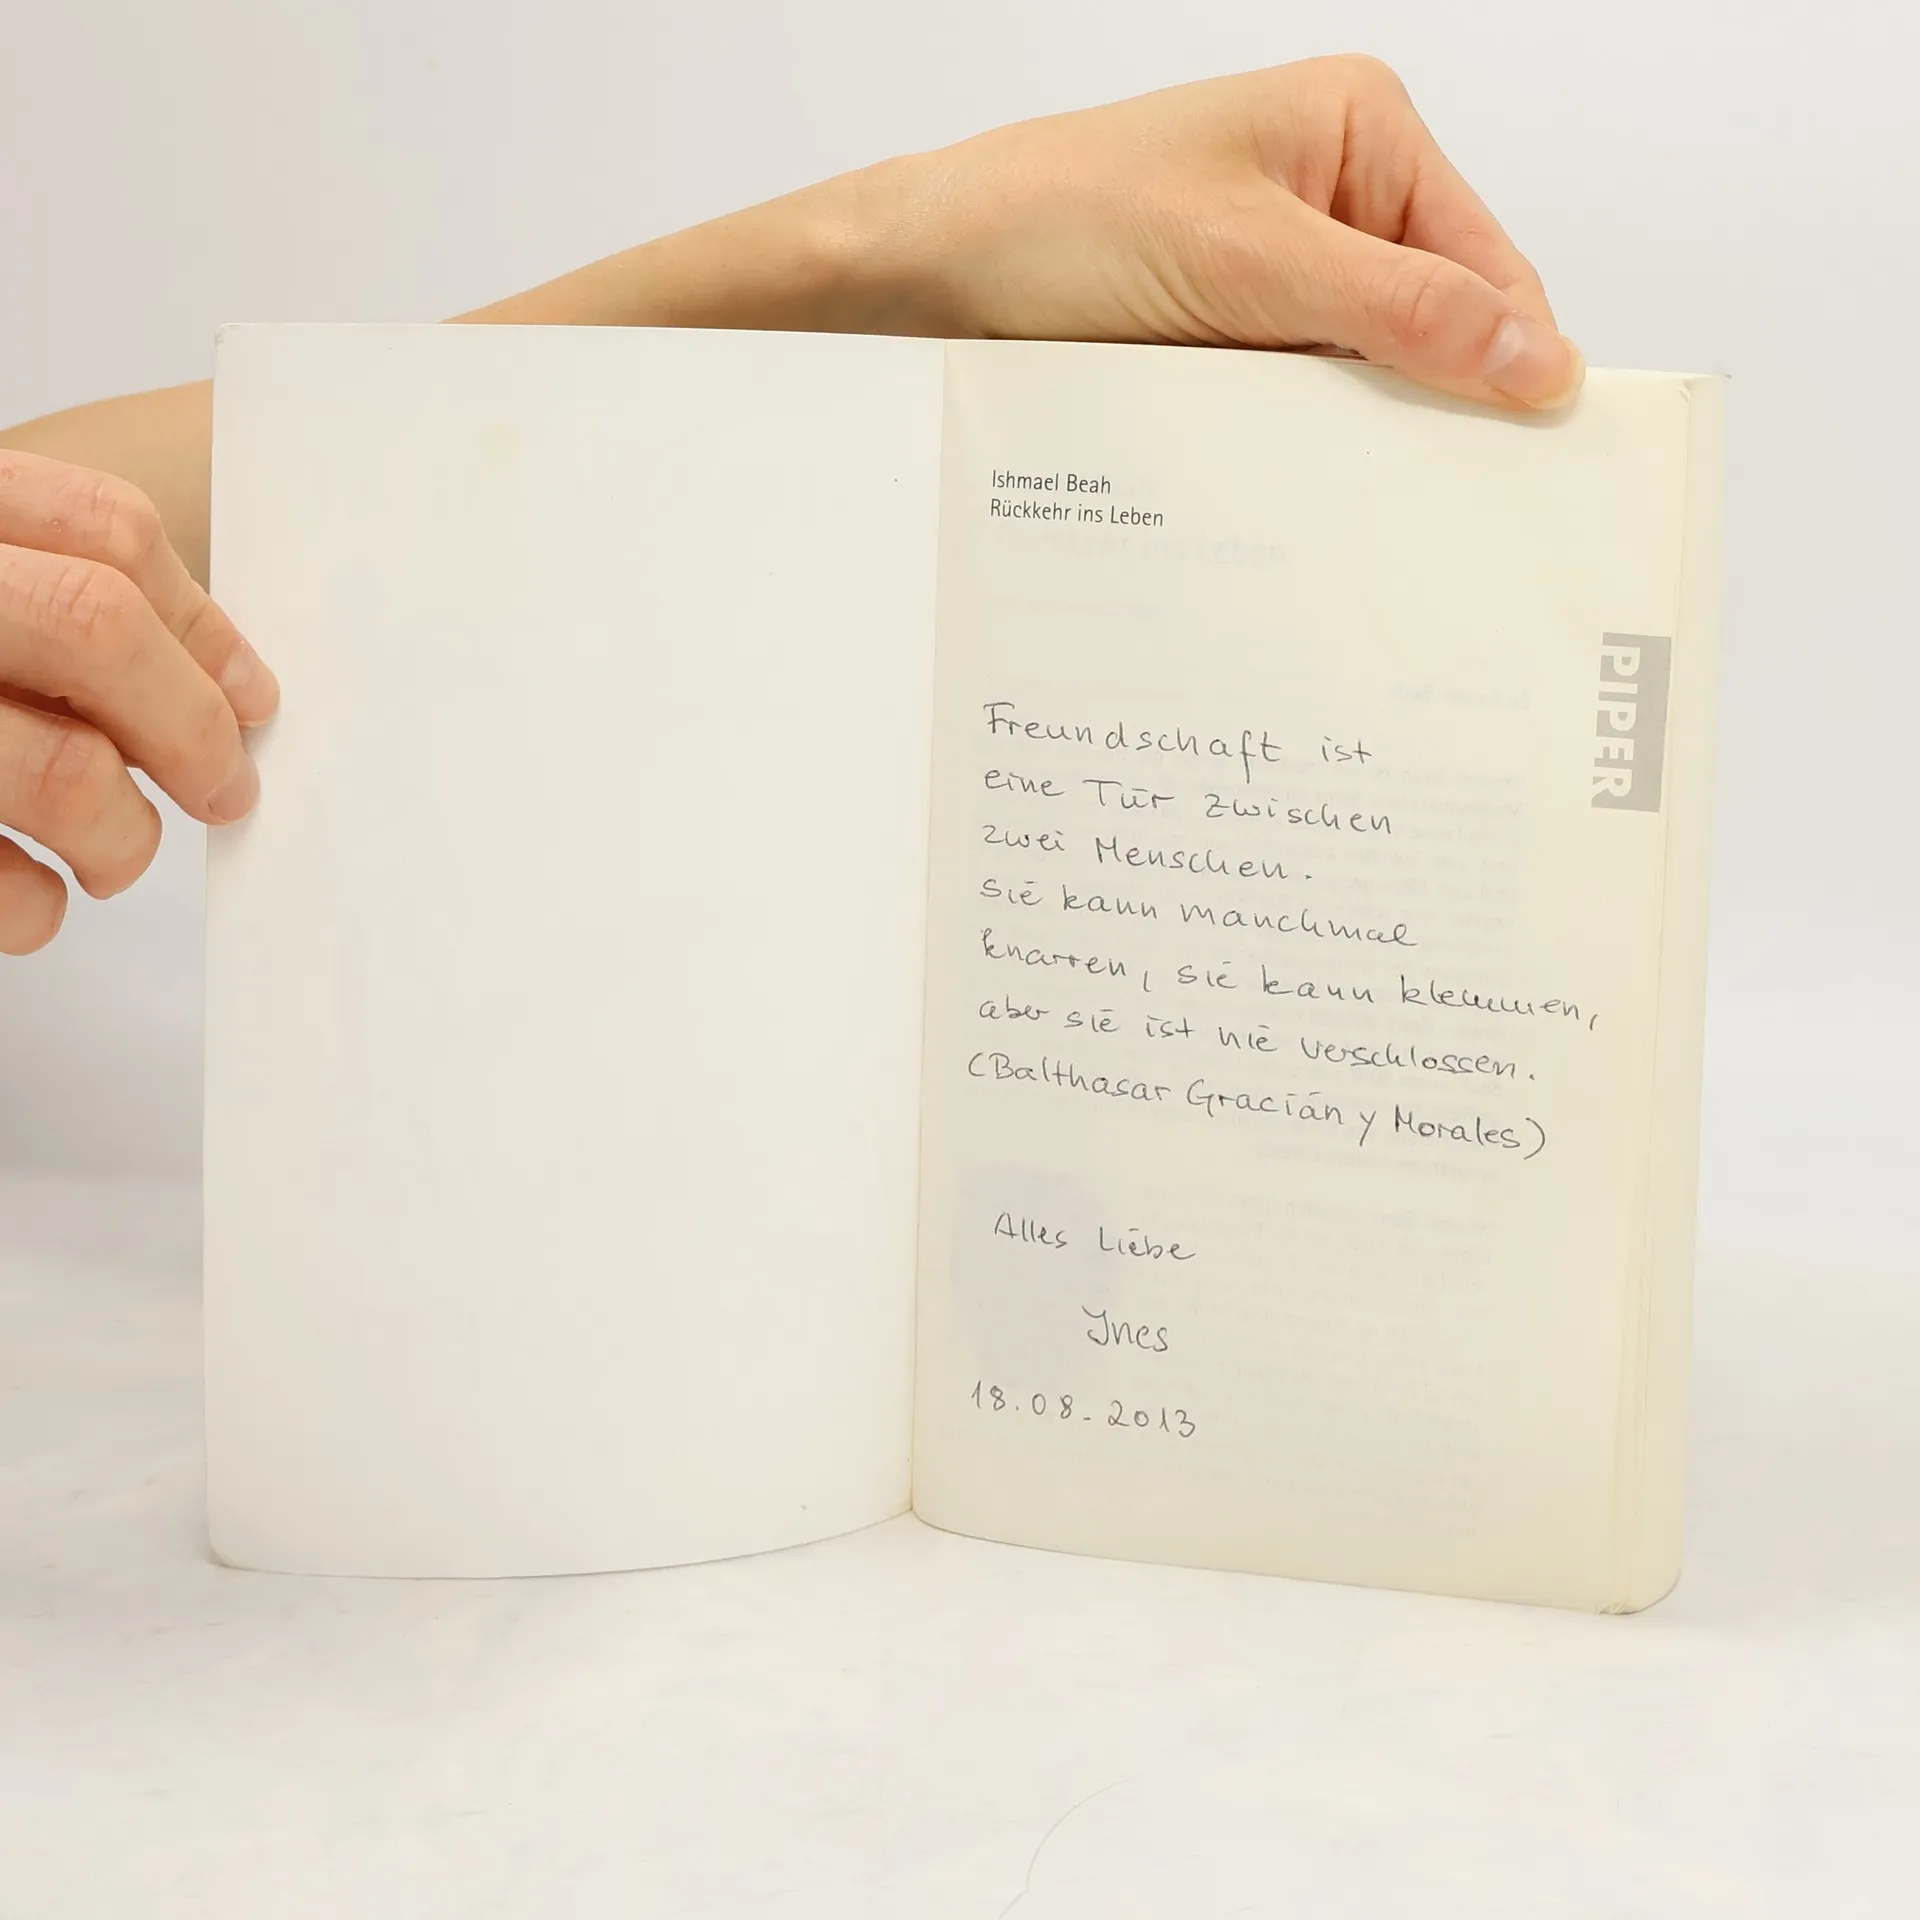 Ishmael Beah
Rückkehr ins Leben
PIPER
Freundschaft ist
eine Tür zwischen
zwei Menschen.
Sie kann manchmal
knarren, sie kann klemmen,
aber sie ist nie verschlossen.
(Balthasar Gracián y Morales)
Alles Liebe
Ines
18.08.2013